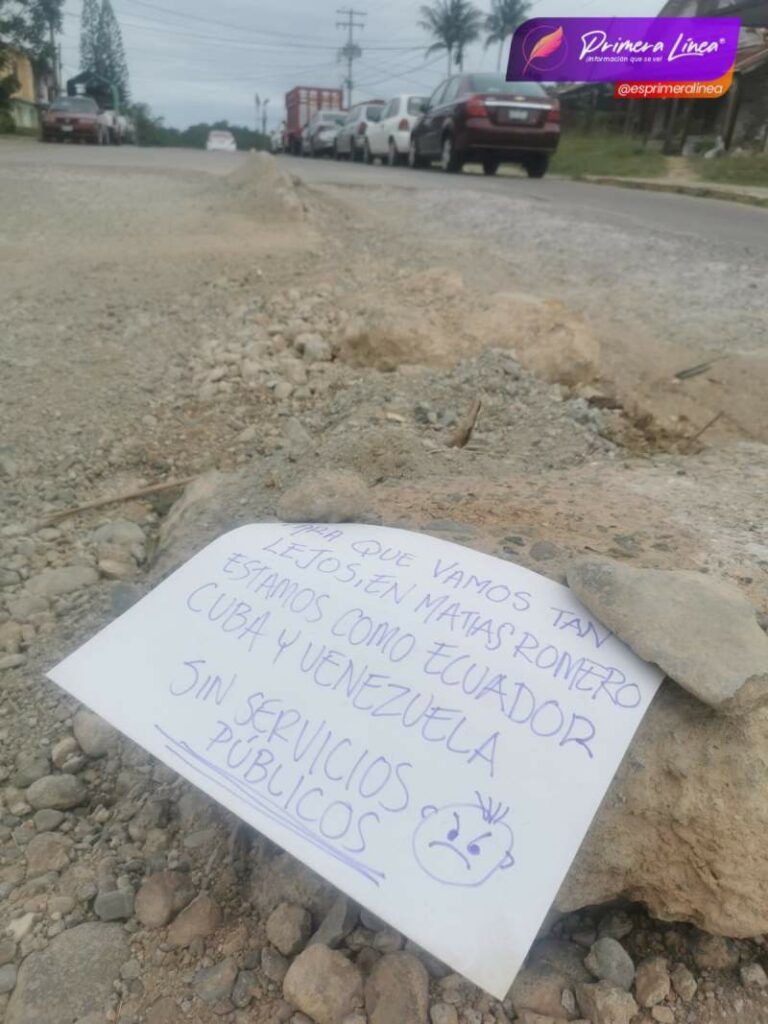 Primera Línea®
¡Información que se ve!
@esprimeralinea
PARA QUE VAMOS TAN
LEJOS, EN MATIAS ROMERO
ESTAMOS COMO ECUADOR
CUBA Y VENEZUELA
SIN SERVICIOS
PÚBLICOS